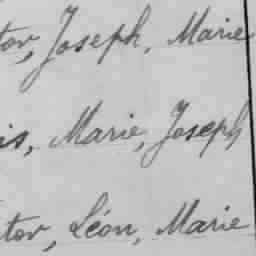 tor, Joseph, Marie
is, Marie, Joseph
tor, Léon, Marie